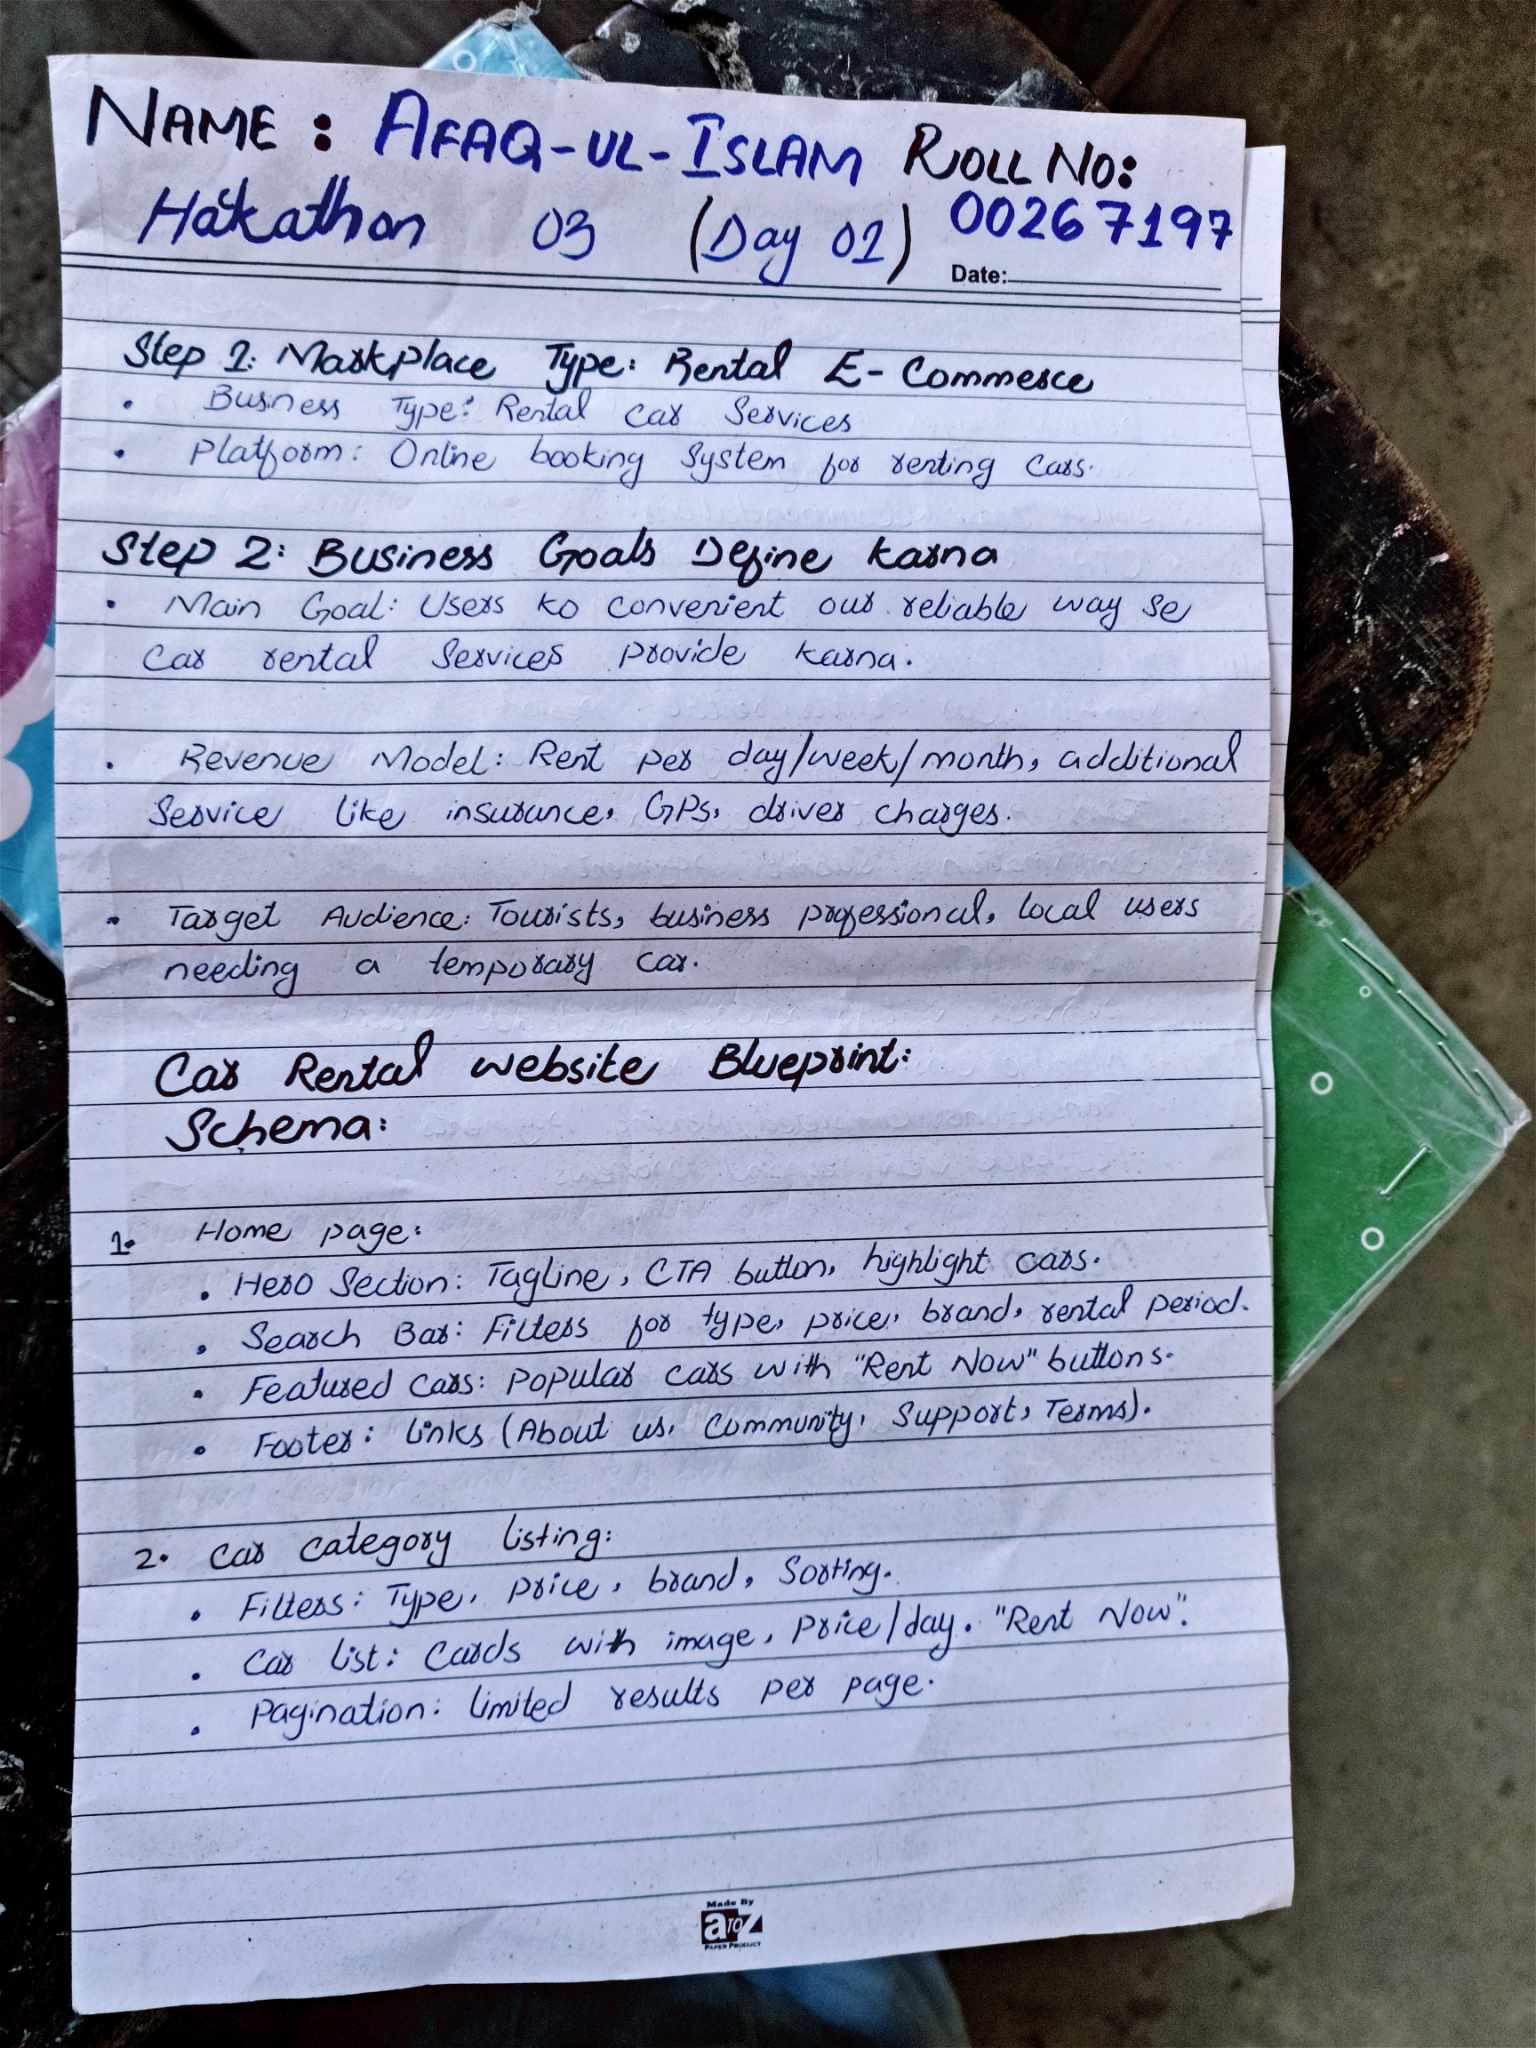 NAME: AFAQ-UL-ISLAM ROLL NO:
Hakathon 03 (Day 01) 00267197
Date:
Step 1: Markplace Type: Rental E-Commerce
• Business Type: Rental Car Services
• Platform: Online booking System for renting Cars.
Step 2: Business Goals Define karna
• Main Goal: Users ko convenient our reliable way se
Car rental Services provide karna.
• Revenue Model: Rent per day/week/month, additional
Service like insurance, GPs, driver charges.
• Target Audience: Tourists, business professional, local users
needing a temporary car.
Car Rental website Blueprint:
Schema:
1. Home page:
• Hero Section: Tagline, CTA button, highlight cars.
• Search Bar: Filters for type, price, brand, rental period.
• Featured Cars: Popular cars with "Rent Now" buttons.
• Footer: links (About us, Community, Support, Terms).
2. Car category listing:
• Filters: Type, Price, brand, Sorting.
• Car list: Cards with image, Price/day. "Rent Now".
• Pagination: limited results per page.
Made By
a TO z
PAPER PRODUCT